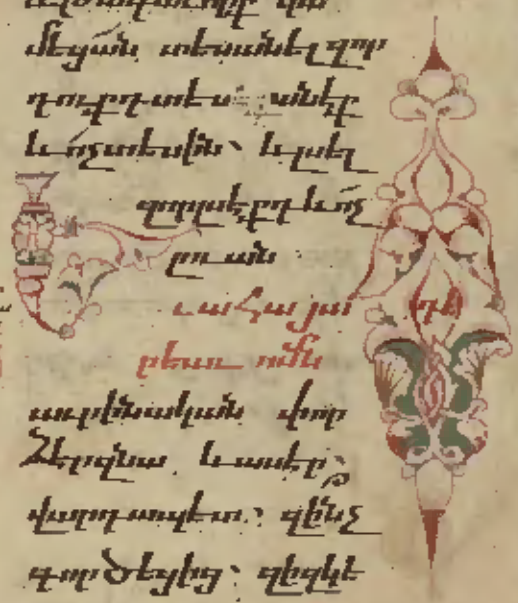 մեցան տեսանել զոր
դուքդ տեսանէք
և ոչ տեսին՝ և լսել
զորլսէքդ և ոչ
լուան
Եւ ահա յա
րեաւ ոմն
աւրինական փոր
ձէր զնա և ասէր՝
վարդապետ՝ զինչ
գործեցից՝ զի զկե